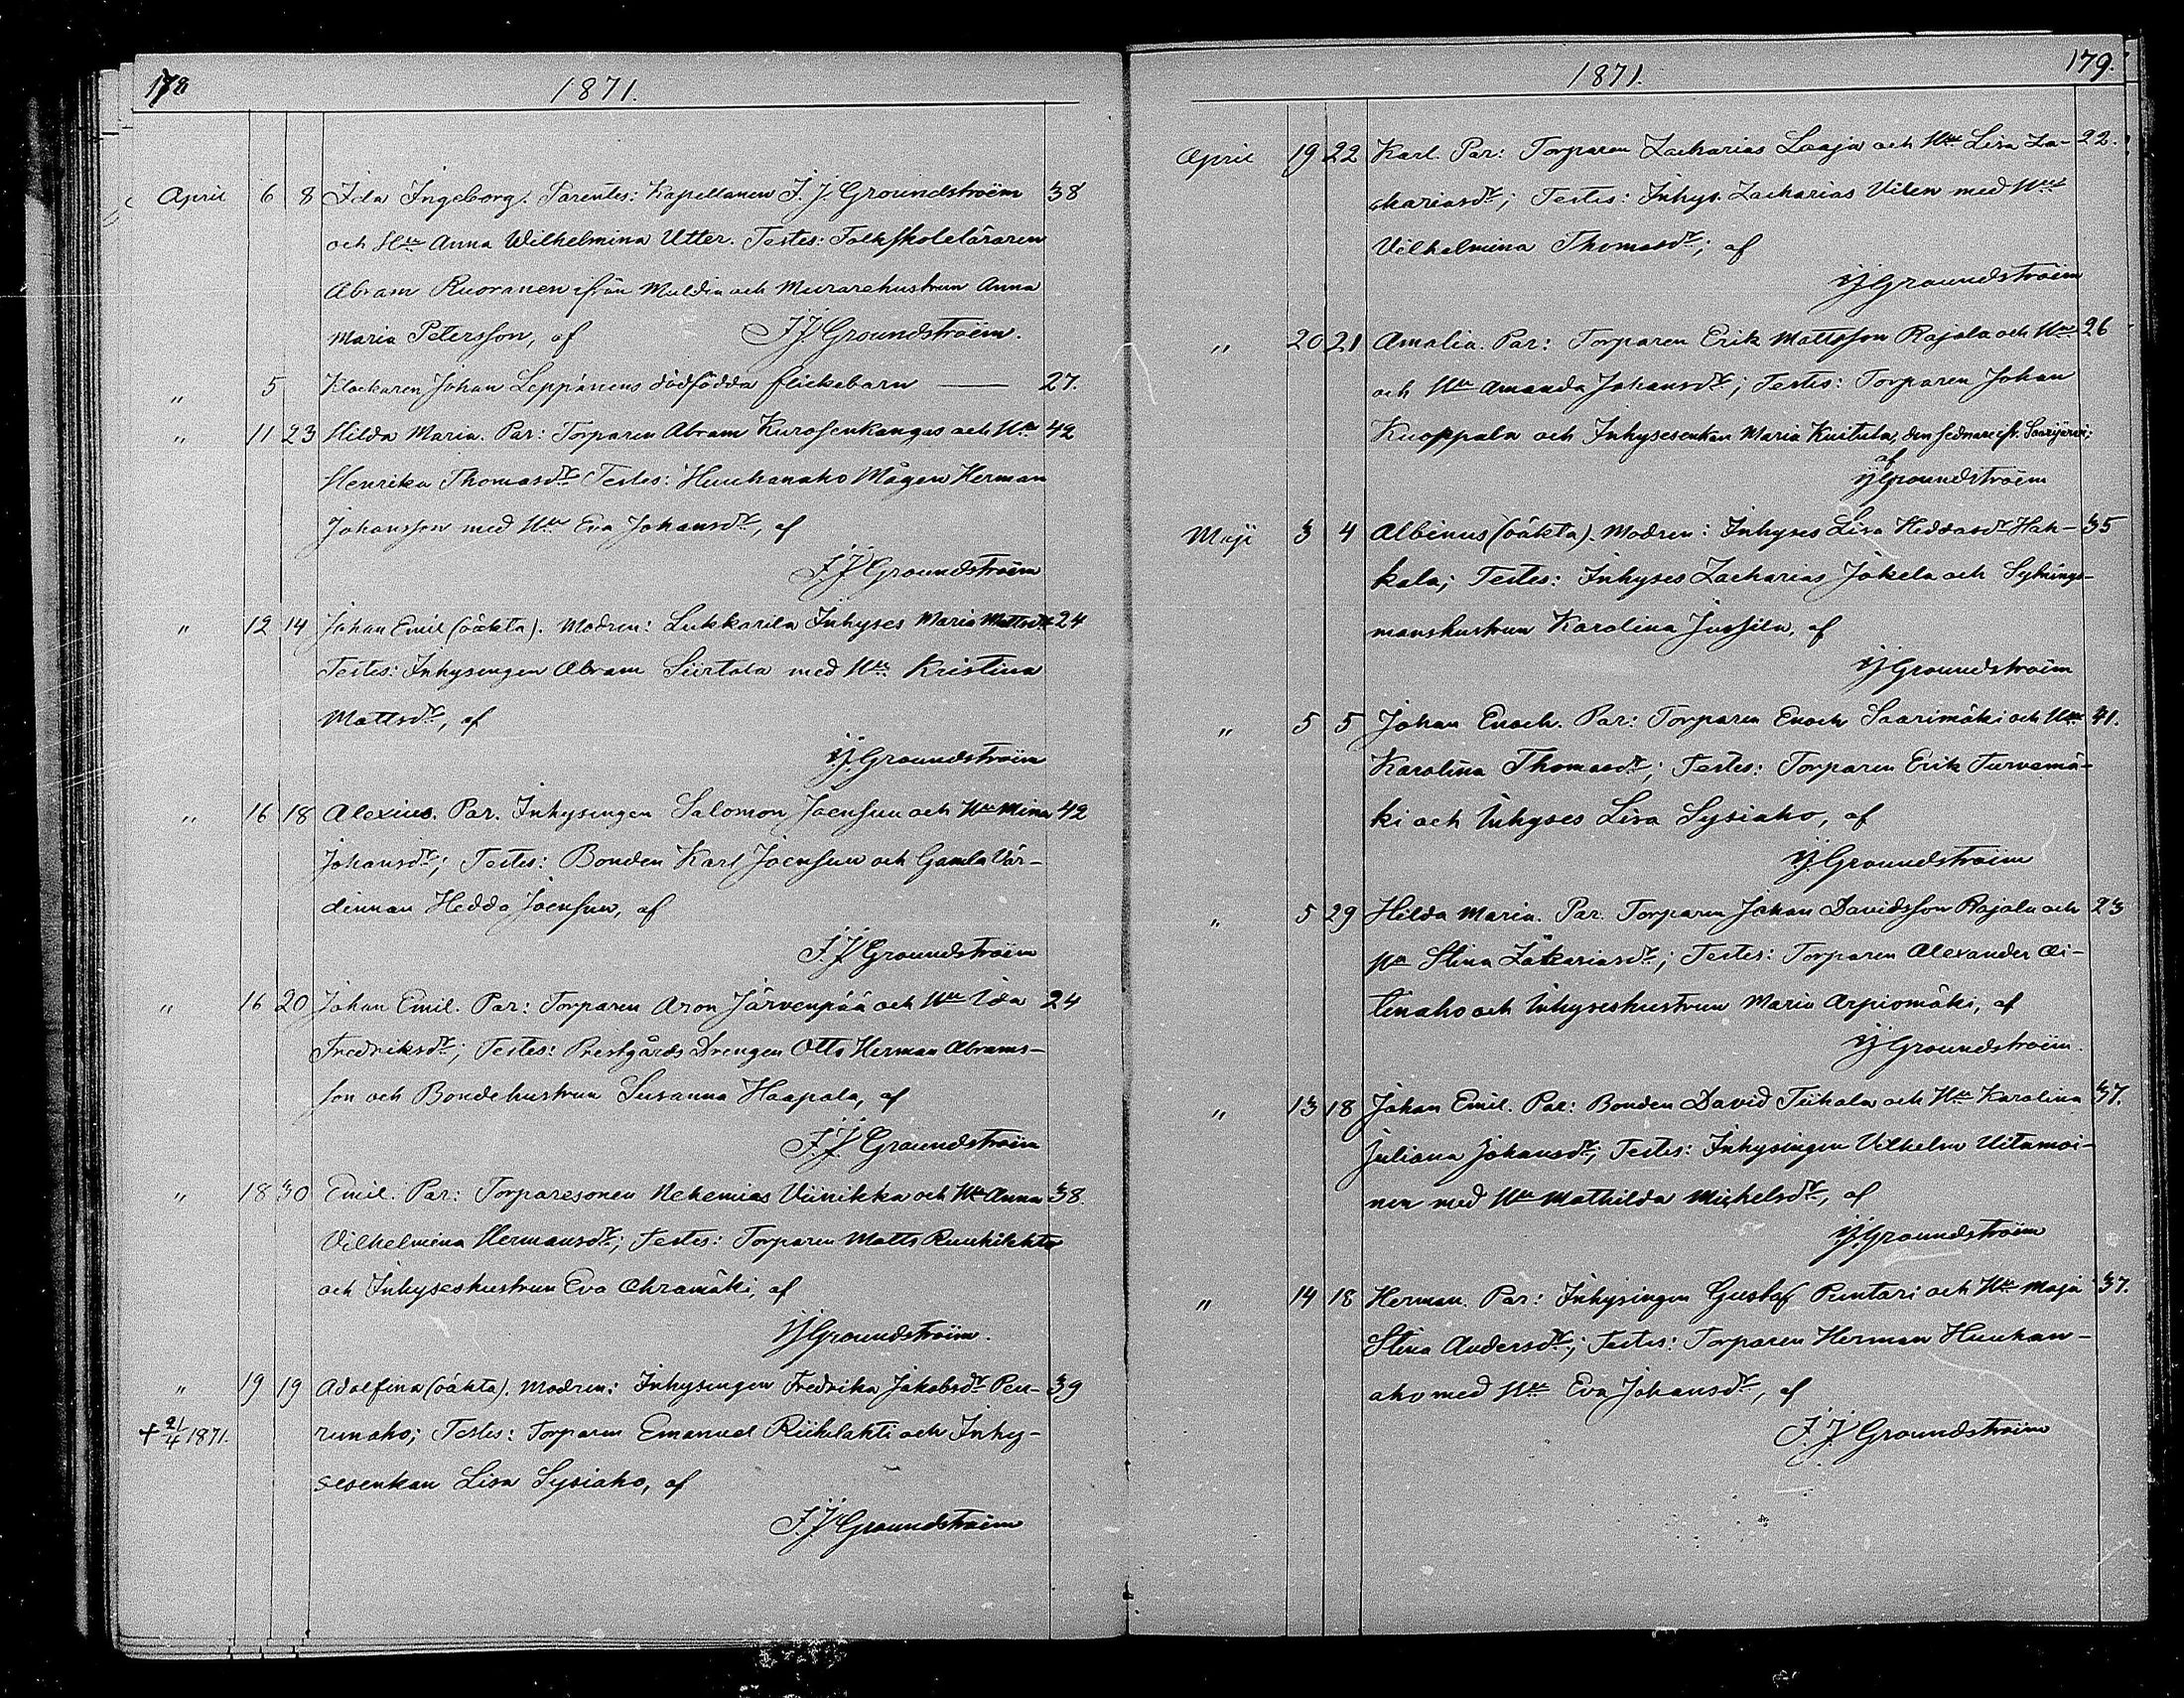 178
1871.
April 6 8 Ida Ingeborg. Parentes: Kapellanen J. J. Groundstroëm 38
och Hu Anna Wilhelmina Utter. Testes: Folkskoleläraren
Abram Ruoranen ifrån Muldia och Murarehustrun Anna
Maria Petersson, af J. J. Groundstroëm.
" 5 Klockaren Johan Leppänens dödfödda flickebarn — 27.
" 11 23 Hilda Maria. Par: Torparen Abram Kurosenkangas och Hu 42
Henrika Thomasdr. Testes: Huuhanaho Mågen Herman
Johansson med Hu Eva Johansdr, af
J. J. Groundstroëm
" 12 14 Johan Emil (oäkta). Modren: Lukkarila Inhyses Maria Mattsdr 24
Testes: Inhysingen Abram Siirtola med Hu Kristina
Mattsdr, af
J. J. Groundstroëm
" 16 18 Alexius. Par. Inhysingen Salomon Joensuu och Hu Mina 42
Johansdr; Testes: Bonden Karl Joensuu och Gamla Vär-
dinnan Hedda Joensuu, af
J. J. Groundstroëm
" 16 20 Johan Emil. Par: Torparen Aron Järvenpää och Hu Ida 24
Fredriksdr; Testes: Prestgårds Drengen Otto Herman Abrams-
son och Bondehustrun Susanna Haapala, af
J. J. Groundstroëm
" 18 30 Emil. Par: Torparesonen Nehemias Viinikka och Hu Anna 38.
Vilhelmina Hermansdr; Testes: Torparen Matts
och Inhyseshustrun Eva Ahramäki, af
J. J. Groundstroëm.
" 19 19 Adolfina (oäkta). Modren: Inhysingen Fredrika Jakobsdr Pen- 39
† 21/4 1871. runaho; Testes: Torparen Emanuel Riihilahti och Inhy-
sesenkan Lisa Sysiaho, af
J. J. Groundstroëm
179.
1871.
April 19 22 Karl. Par: Torparen Zacharias Laaja och Hu Lisa Za- 22.
chariasdr; Testes: Inhys. Zacharias Vilen med Hu
Vilhelmina Thomasdr; af
J. J. Groundstroëm
" 20 21 Amalia. Par: Torparen Erik Mattsson Rajala och Hu 26
och Hu Amanda Johansdr; Testes: Torparen Johan
Kuoppala och Inhysesenkan Maria Kuitula, den sednare ifr. Saarijärvi;
af
J. J. Groundstroëm
Maji 3 4 Albinus (oäkta). Modren: Inhyses Lisa Heddasdr Hak- 35
kala; Testes: Inhyses Zacharias Jokela och Sytnings-
manshustrun Karolina Jussila, af
J. J. Groundstroëm
" 5 5 Johan Enoch. Par: Torparen Enoch Saarimäki och Hu 41.
Karolina Thomasdr; Testes: Torparen Erik Turvemä-
ki och Inhyses Lisa Sysiaho, af
J. J. Groundstroëm
" 5 29 Hilda Maria. Par. Torparen Johan Davidsson Rajala och 23
Hu Stina Zakariasdr; Testes: Torparen Alexander Ai-
tinaho och Inhyseshustrun Maria Arpiomäki, af
J. J. Groundstroëm.
" 13 18 Johan Emil. Par: Bonden David Tiihala och Hu Karolina 37.
Juliana Johansdr; Testes: Inhysingen Vilhelm Uitamoi-
nen med Hu Mathilda Michelsdr, af
J. J. Groundstroëm
" 14 18 Herman. Par: Inhysingen Gustaf Puntari och Hu Maja 37.
Stina Andersdr; Testes: Torparen Herman Huuhan-
aho med Hu Eva Johansdr, af
J. J. Groundstroëm